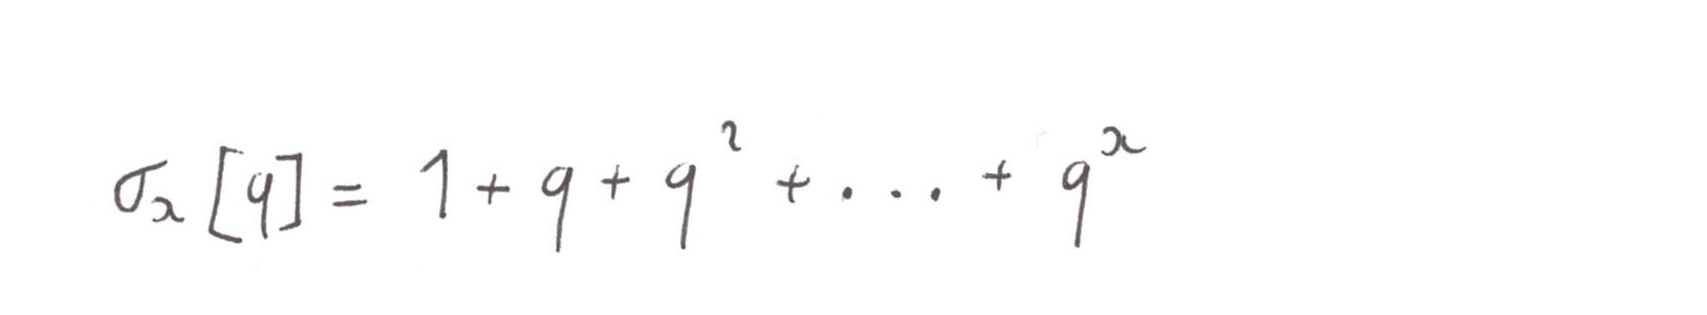 σₓ[q] = 1 + q + q² + ... + qˣ